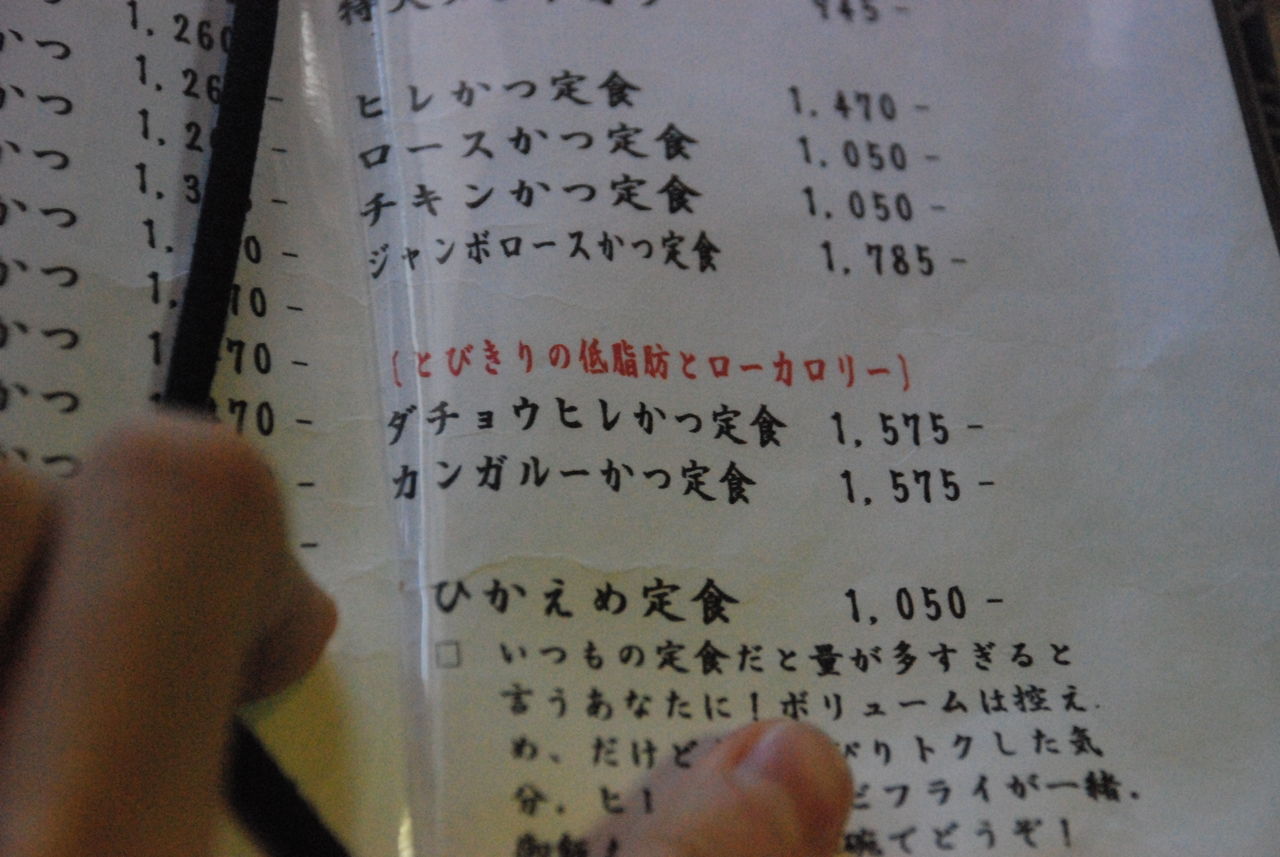 かつ 1,260
かつ 1,26 -
かつ 1,2 -
かつ 1,3 -
かつ 1, 0 -
かつ 1, 70 -
かつ 1 70 -
かつ 70 -
かつ -
-
945-
ヒレかつ定食 1,470-
ロースかつ定食 1,050-
チキンかつ定食 1,050-
ジャンボロースかつ定食 1,785-
(とびきりの低脂肪とローカロリー)
ダチョウヒレかつ定食 1,575-
カンガルーかつ定食 1,575-
ひかえめ定食 1,050-
□ いつもの定食だと量が多すぎると
言うあなたに!ボリュームは控え
め、だけど ぴりトクした気
分。ヒ フライが一緒。
碗でどうぞ!